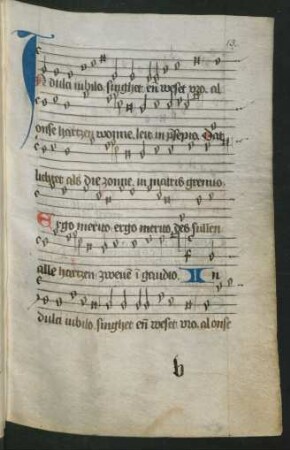 13
In dulci iubilo. singhet eñ weset vro. al
onse hartzen wonne. leit in p̃sepio. Dat
luchtet als die zonne. in matris gremio.
Ergo merito. ergo merito. des sullen
alle hartzen zweuẽ ĩ gaudio. In
dulci iubilo. singhet eñ weset vro. al onse
b